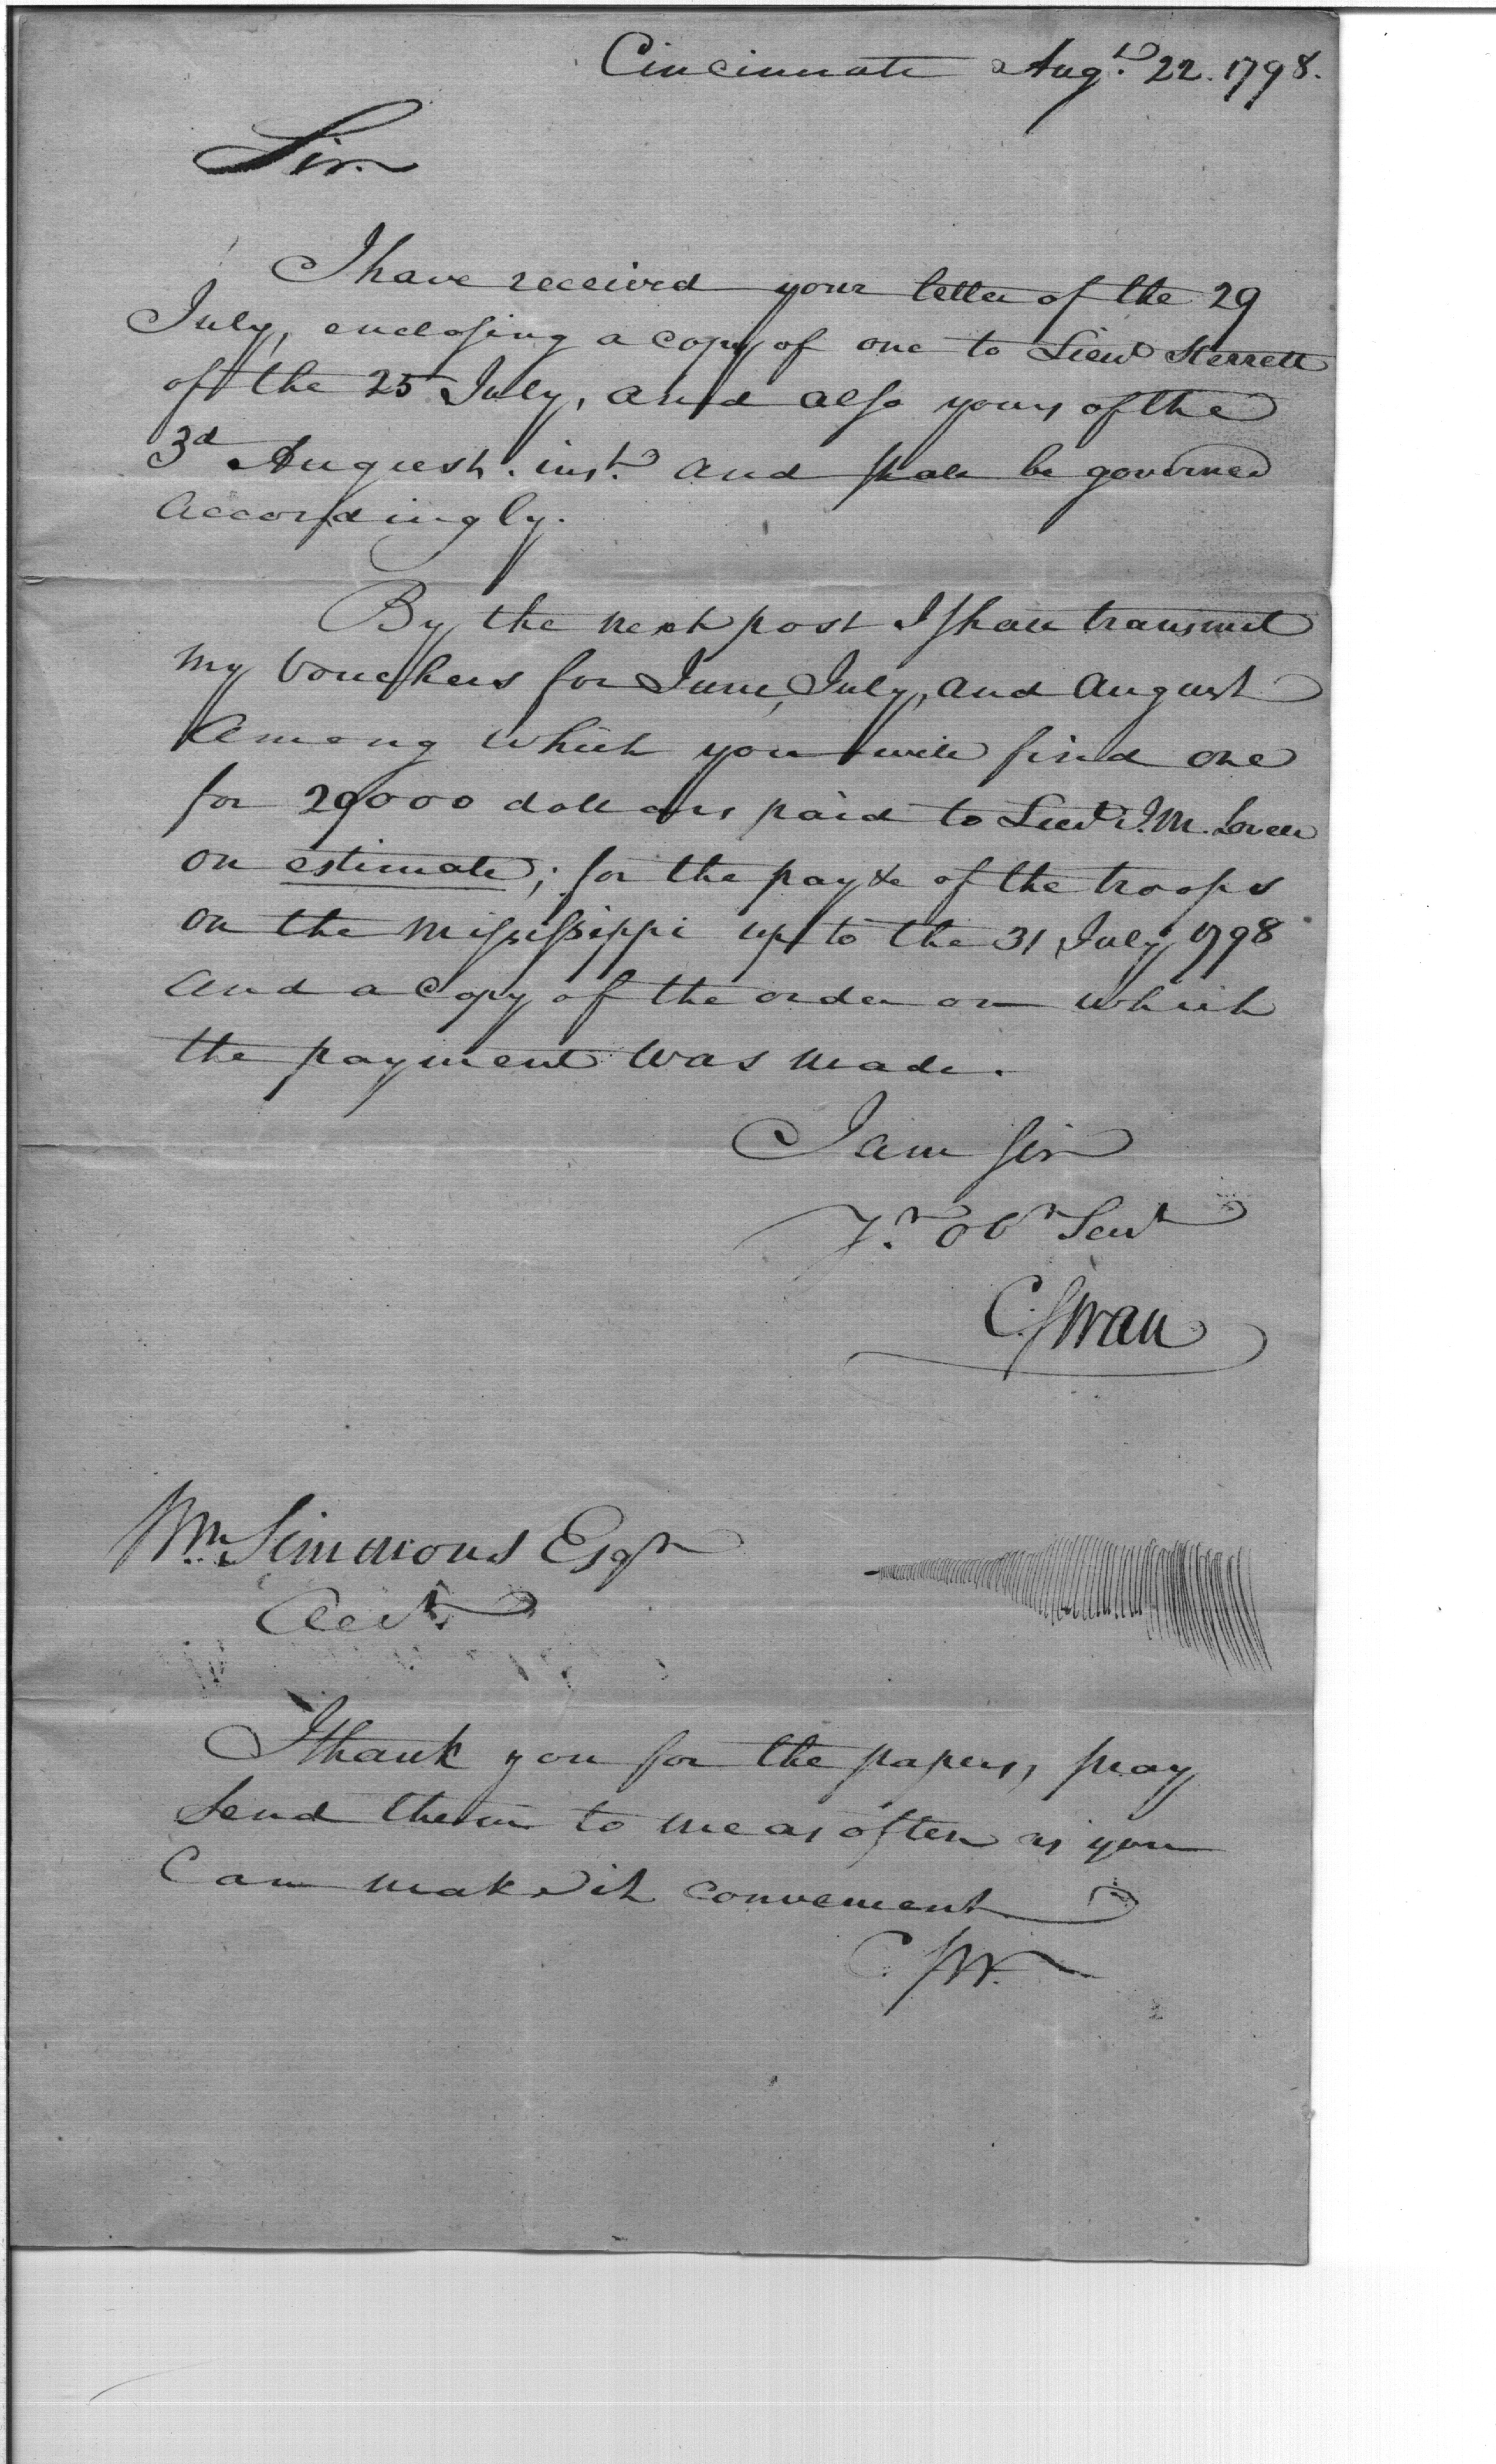 Cincinnati Augt. 22. 1798.
Sir
I have received your letter of the 29
July, enclosing a copy of one to Lieut Sterrett
of the 25 July, and also yours of the
3d August. inst. and shall be governed
accordingly.
By the next post I shall transmit
my Vouchers for June, July, and August
Among which you will find one
for 29000 dollars paid to Lieut J. M. Lovell
on estimate; for the pay &c of the troops
on the Mississippi up to the 31 July 1798
and a copy of the order on which
the payment was made.
I am Sir
Yr. Ob Servt
C. Swan
Wm. Simmons Esqr
Acct.
I thank you for the papers, pray
send them to me as often as you
Can make it convenient
C. SW.